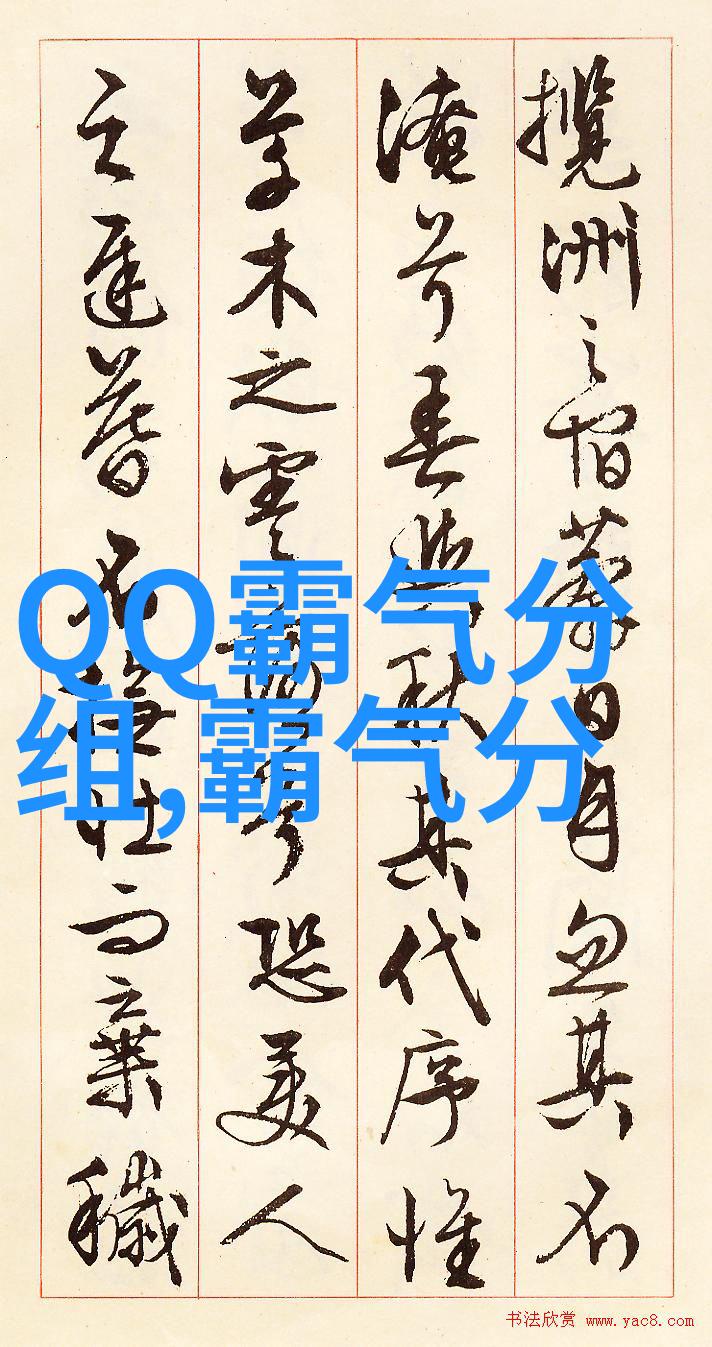 攬洲之宿莽日月忽其不
淹兮春與秋其代序惟
草木之零落兮恐美人
之遲暮不撫壯而棄穢
QQ霸气分
组,霸气分
书法欣赏 www.yac8.com